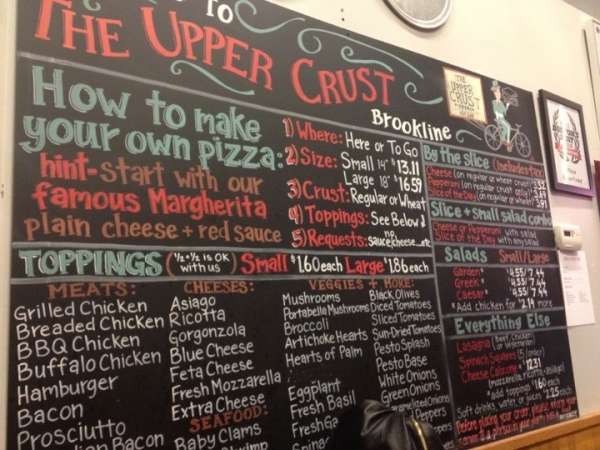 TO
THE UPPER CRUST
Brookline
THE
UPPER
CRUST
How to make
your own pizza:
hint-start with our
famous Margherita
plain cheese + red sauce
1) Where: Here or To Go
2) Size: Small 14" $13.11
Large 18" $16.59
3) Crust: Regular or Wheat
4) Toppings: See Below
5) Requests: no sauce, cheese...etc
TOPPINGS (½+½ is OK with us) Small $1.60 each Large $1.86 each
MEATS:
Grilled Chicken
Breaded Chicken
BBQ Chicken
Buffalo Chicken
Hamburger
Bacon
Prosciutto
Bacon
CHEESES:
Asiago
Ricotta
Gorgonzola
Blue Cheese
Feta Cheese
Fresh Mozzarella
Extra Cheese
SEAFOOD:
Baby Clams
VEGGIES + MORE:
Mushrooms
Portabella Mushrooms
Broccoli
Artichoke Hearts
Hearts of Palm
Eggplant
Fresh Basil
Fresh
Black Olives
Diced Tomatoes
Sliced Tomatoes
Sun-Dried Tomatoes
Pesto Splash
Pesto Base
White Onions
Green Onions
Onions
Peppers
By the slice (includes tax)
Cheese (on regular or wheat crust)
Pepperoni (on regular crust only)
Slice of the Day (on regular or wheat) 3.91
Slice + small salad combo
Cheese or Pepperoni with salad
Slice of the Day with any salad
Salads Small/Large
Garden* $4.55/7.44
Greek* $4.55/7.44
Caesar* $4.55/7.44
*Add chicken for $2.14 more
Everything Else
Lasagna (Beef, Chicken, or Vegetarian)
Spinach Squares (5/order)
Cheese Calzone*
(mozzarella, ricotta + asiago)
*add toppings $1.60 each
Soft drinks, water, or juices $2.25 each
Before placing your order, please inform your
server if a person in your party has a